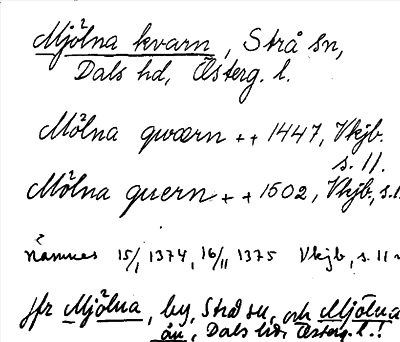 Mjölna kvarn, Strå sn,
Dals hd, Österg. l.
Mölna qwærn ++ 1447, Vkjb.
s. 11.
Mölna quern ++ 1502, Vkjb, s.1
nämnes 15/1 1374, 16/11 1375 Vkjb, s. 11
jfr Mjölna, by, Strå sn, och Mjölna
ån, Dals hd, Österg. l.!